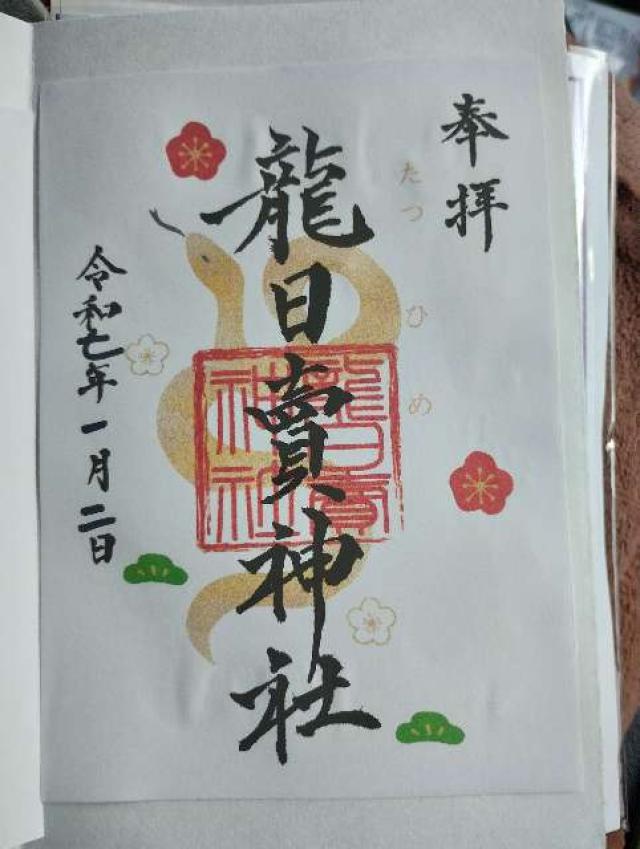 奉拝
たつひめ
龍日賣神社
龍日賣
神社
令和七年一月二日